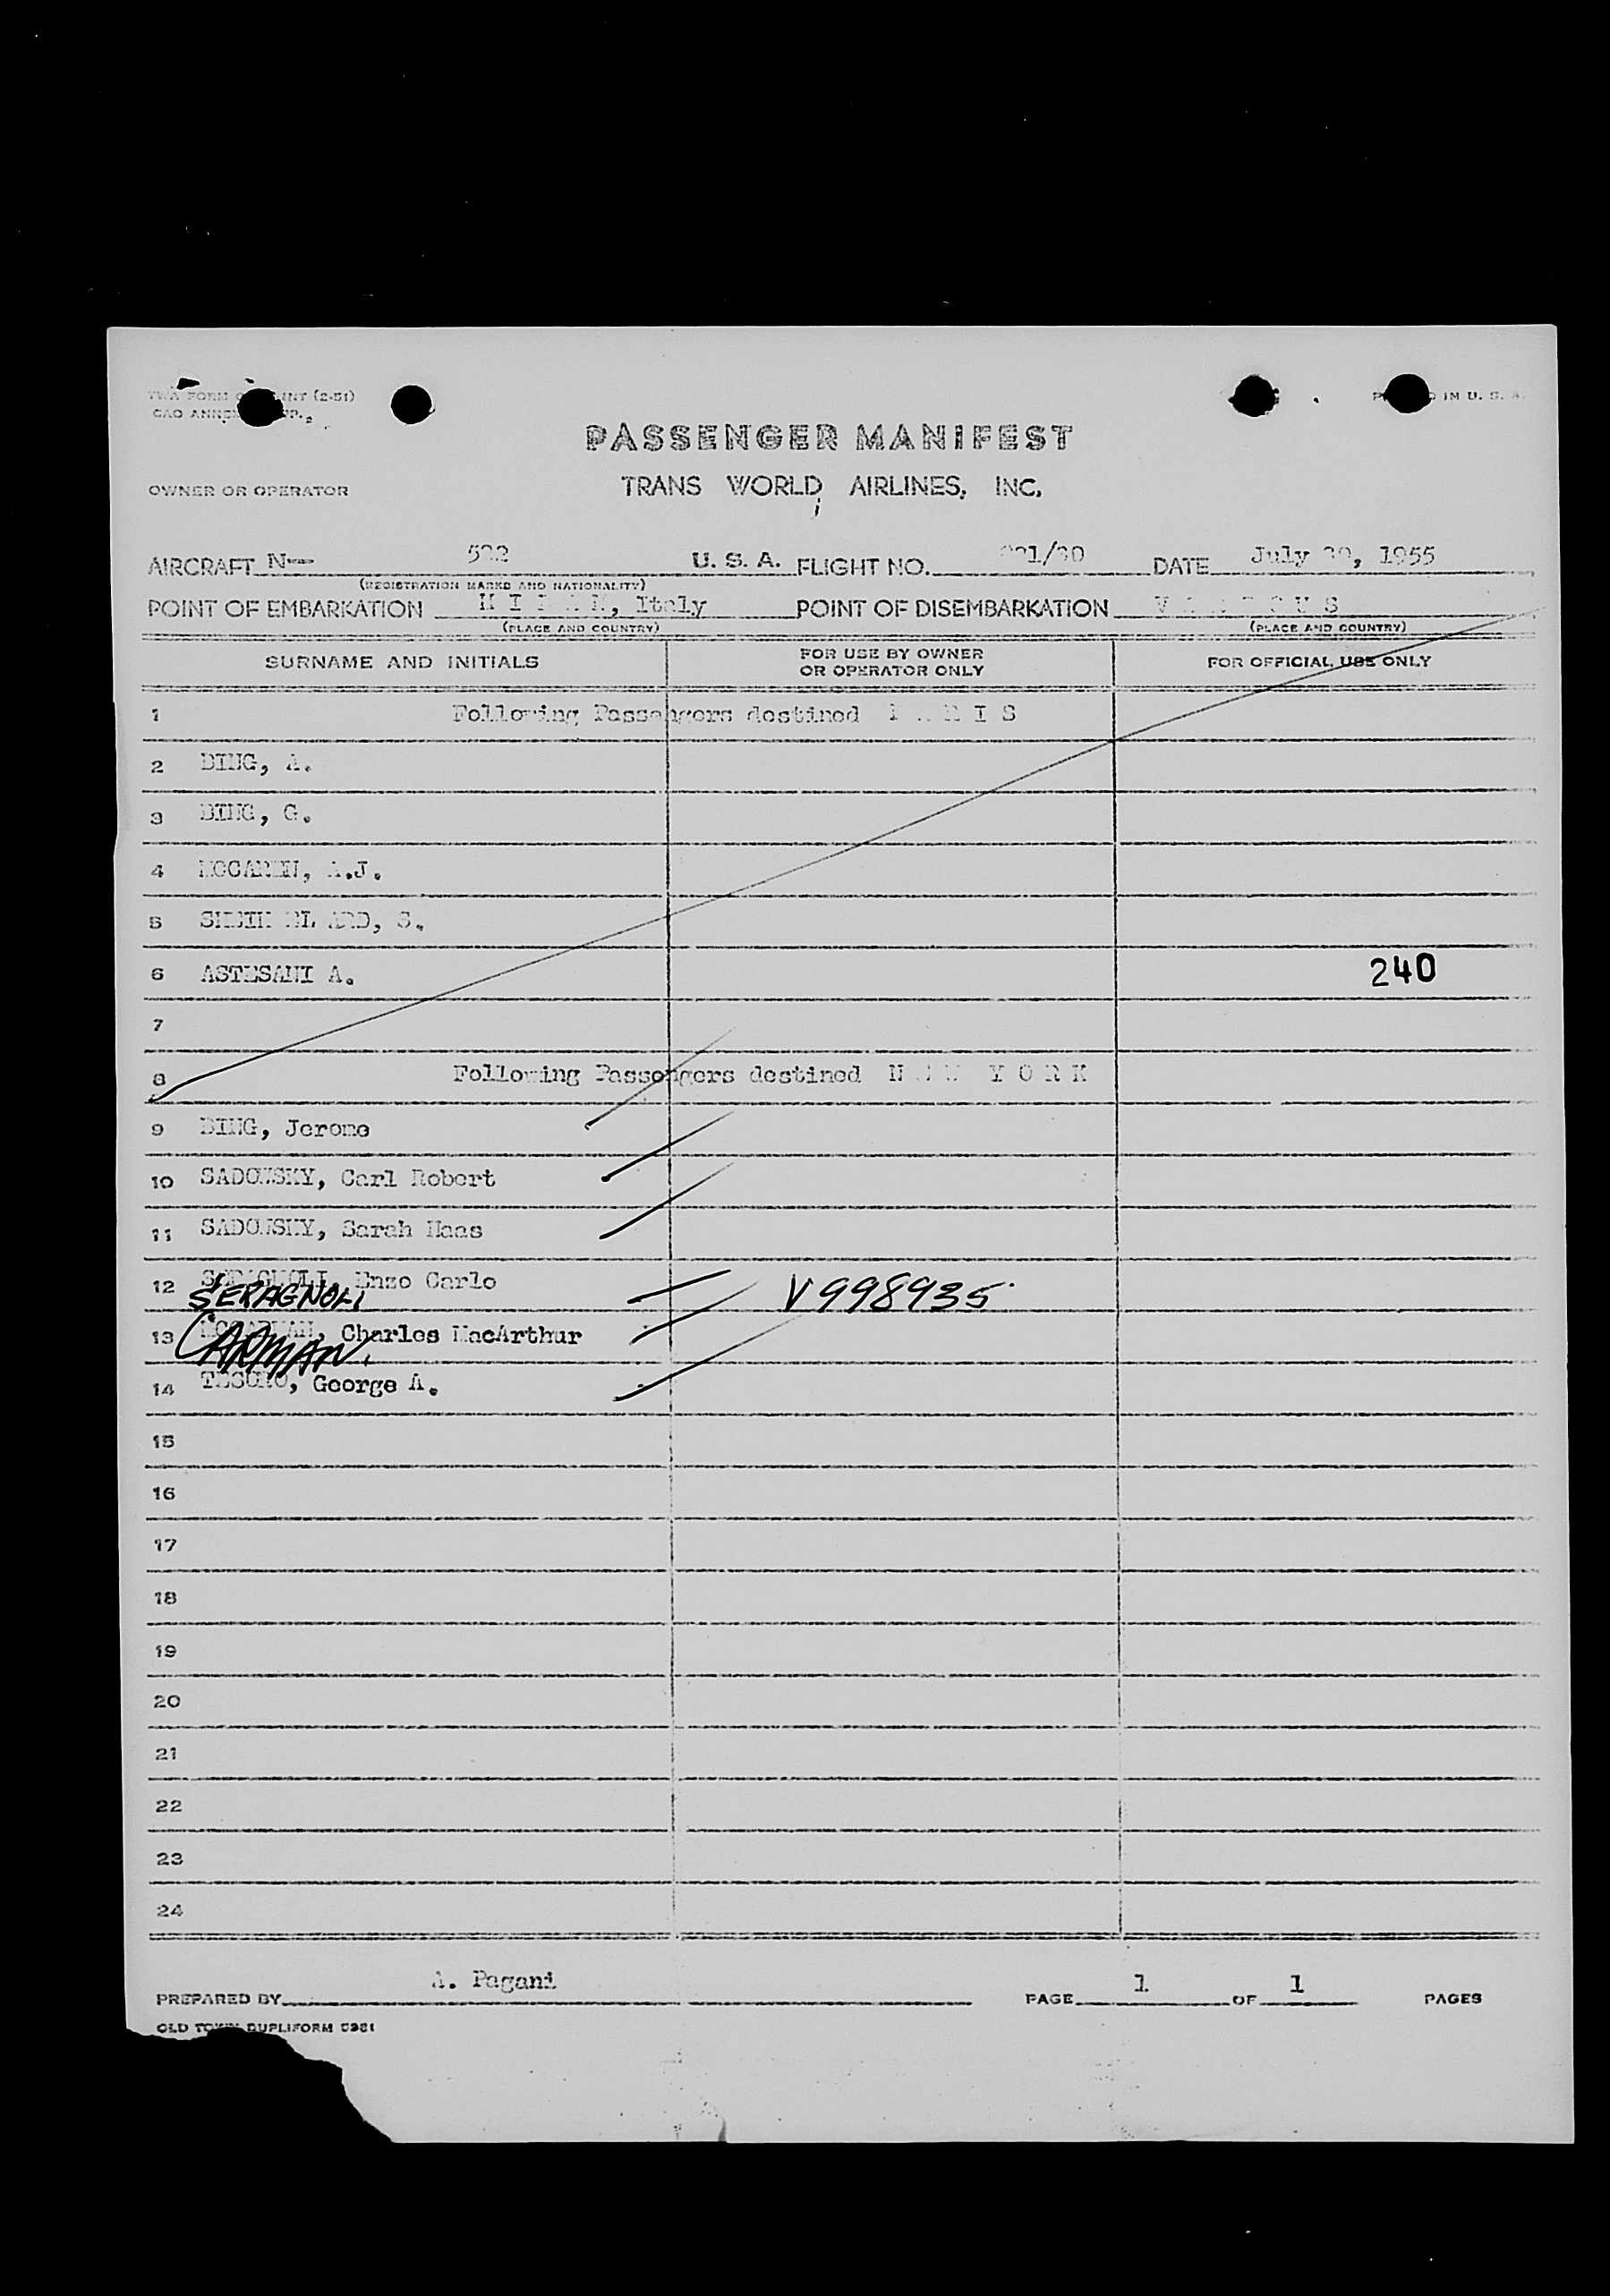 TWA FORM (2-51)
CAO
PASSENGER MANIFEST
OWNER OR OPERATOR TRANS WORLD AIRLINES, INC.
AIRCRAFT N— U. S. A. FLIGHT NO. DATE July 1955
(REGISTRATION MARKS AND NATIONALITY)
POINT OF EMBARKATION M I L A N, Italy POINT OF DISEMBARKATION V A R I O U S
(PLACE AND COUNTRY) (PLACE AND COUNTRY)
SURNAME AND INITIALS FOR USE BY OWNER OR OPERATOR ONLY FOR OFFICIAL USE ONLY
1 Following Passengers destined P A R I S
2 BING, A.
3 BING, G.
4
5
6 ASTESANI A. 240
7
8 Following Passengers destined N E W Y O R K
9 BING, Jerome
10 SADOWSKY, Carl Robert
11 SADOWSKY, Sarah Haas
12 Enzo Carlo
SERAGNOLI V998935
13 Charles MacArthur
CARMAN
14 TESORO, George A.
15
16
17
18
19
20
21
22
23
24
PREPARED BY A. Pagani PAGE 1 OF 1 PAGES
OLD TOWN DUPLIFORM